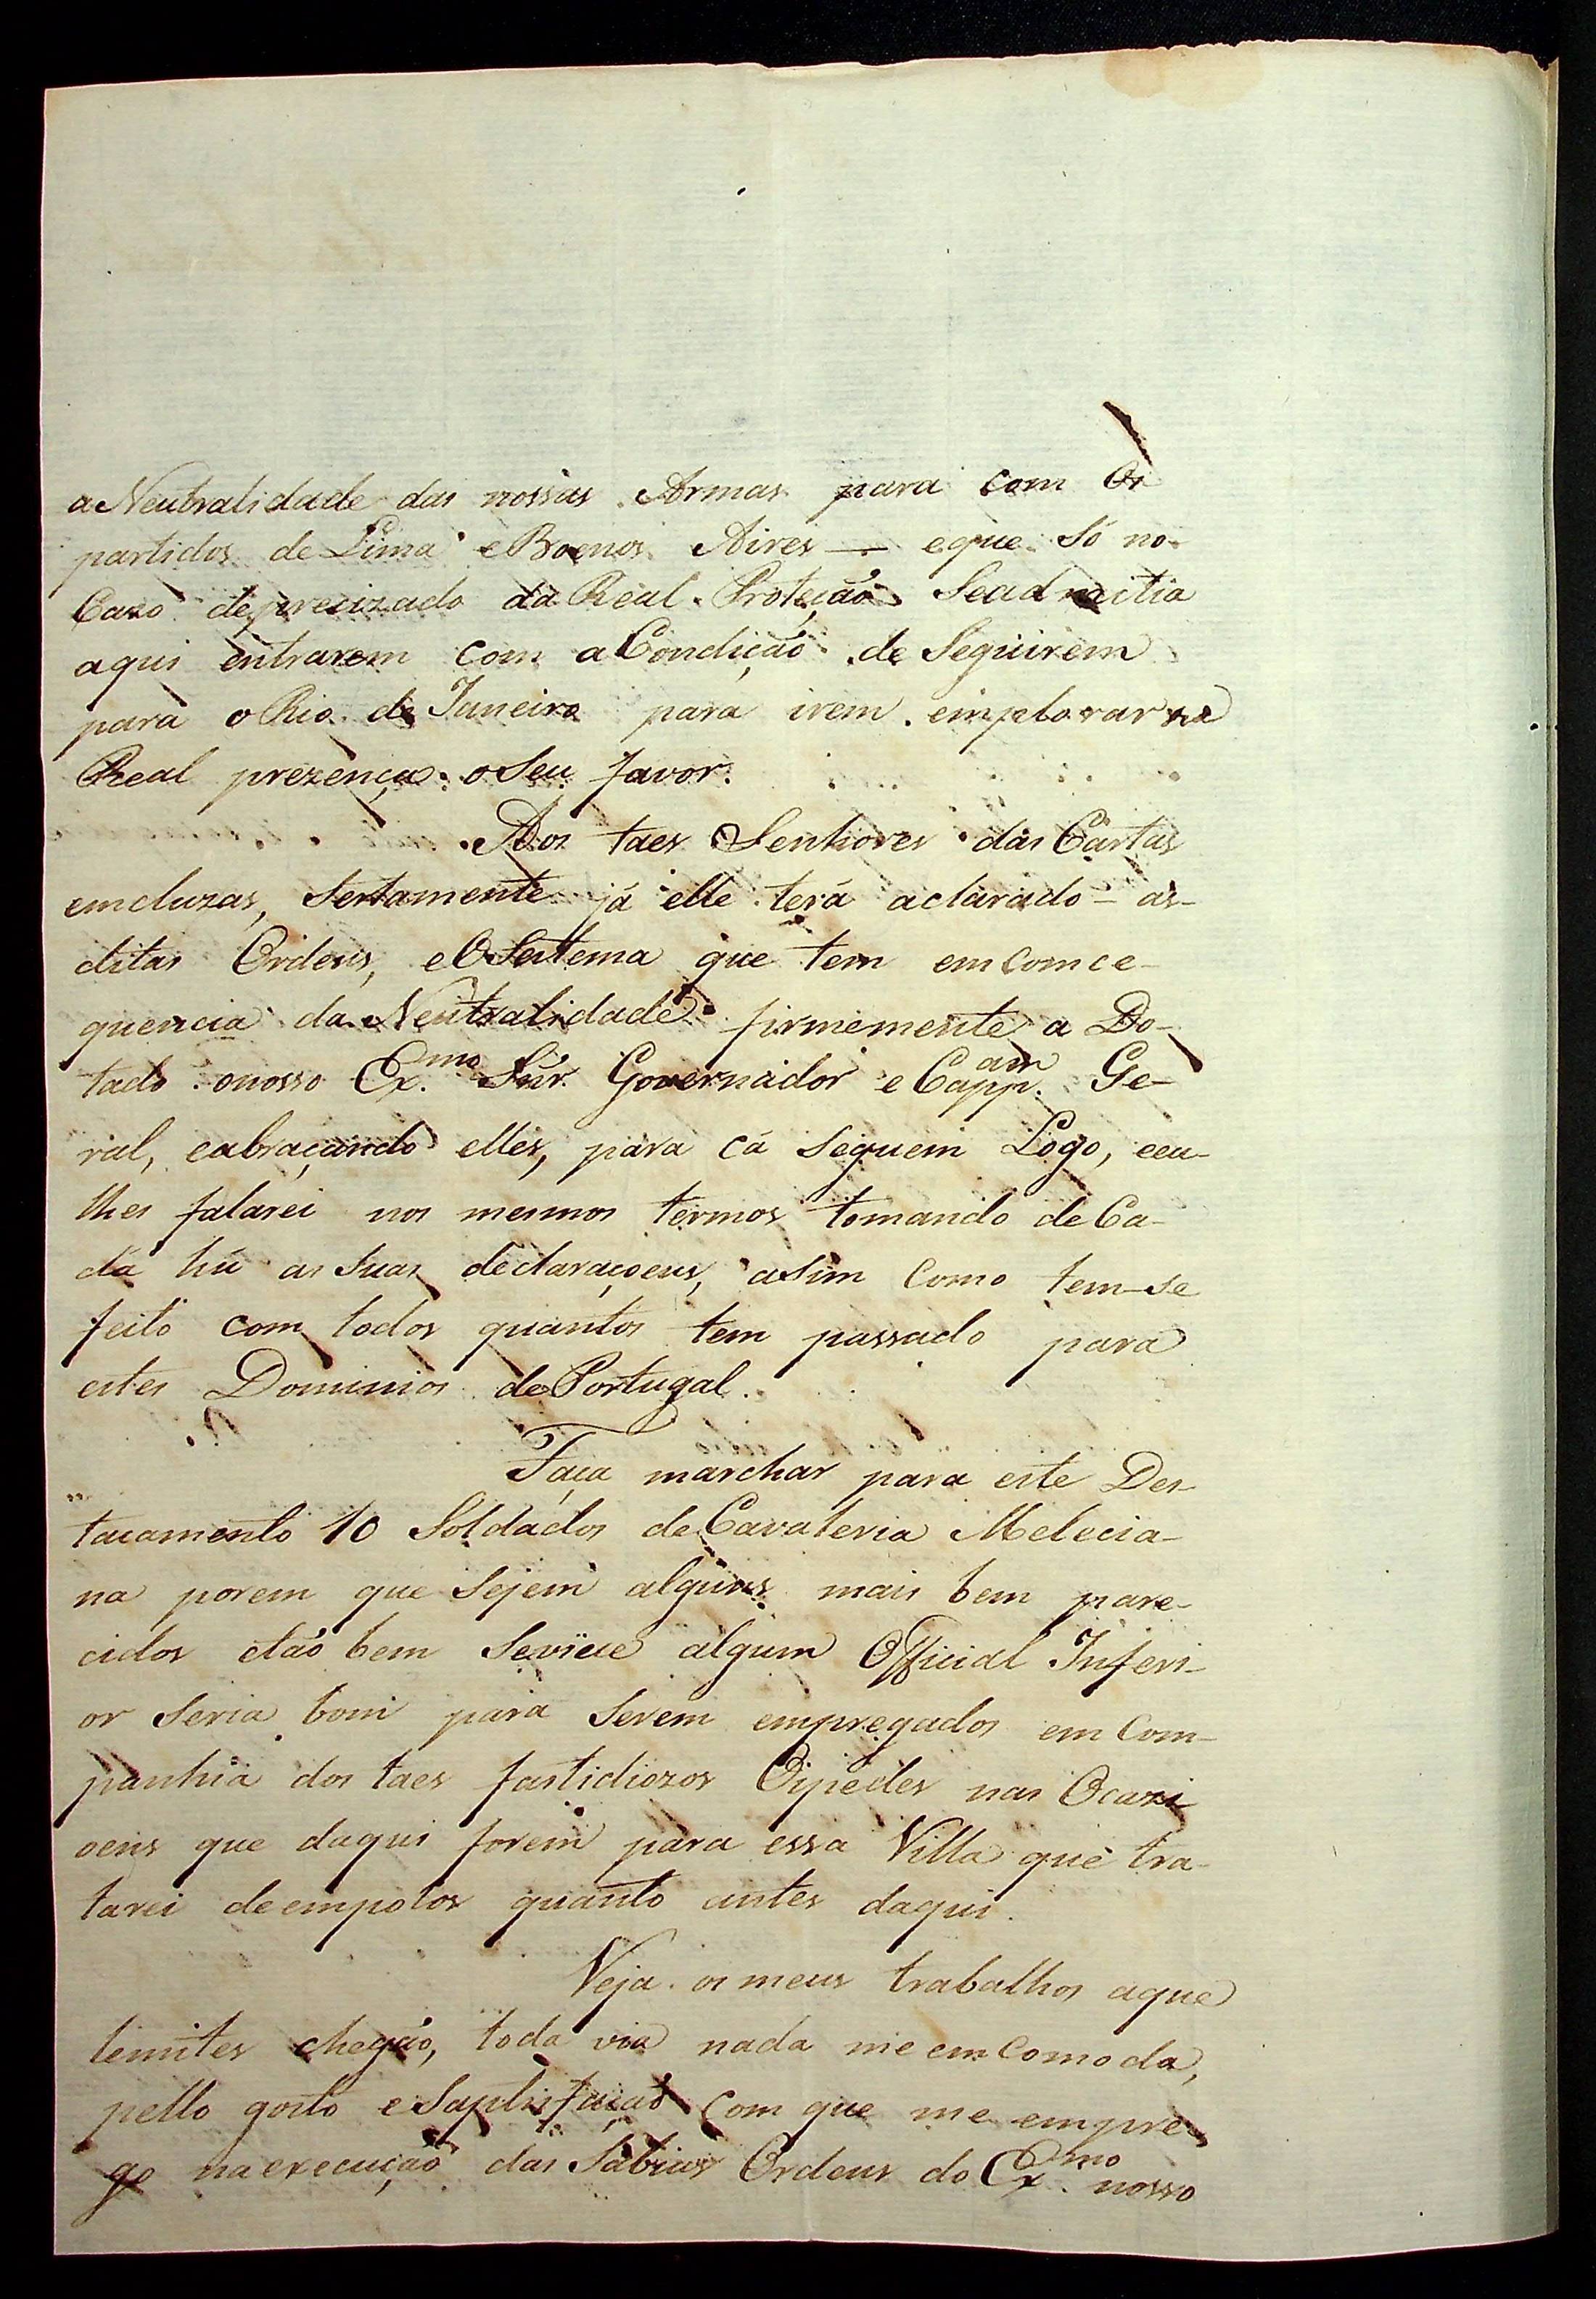 a Neutralidade das nossas Armas para com os
partidos de Lima e Boenos Aires — eque só no
Cazo deprecizado da Real Proteção Seadmitia
aqui entrarem com aCondição de Seguirem
para oRio de Janeiro para irem emplorar na
Real prezença oSeu favor.
Aos taes Senhores das Cartas
emcluzas, Sertamente já elle terá aclarado as
ditas Ordens, eOSestema que tem emComce-
quencia da Neutralidade firmemente a Do-
tado onosso Ex.mo Snr. Governador e Capp.am Ge-
ral, eabraçando elles, para cá Seguem Logo, eeu
lhes falarei nos mesmos termos tomando de Ca-
da hú as Suas declaraçoens, aSim Como tem-se
feito com todos quantos tem passado para
estes Dominios dePortugal.
Faça marchar para este Des-
tacamento 10 Soldados deCavaleria Melecia-
na porem que Sejem alguns mais bem pare-
cidos etão bem Sevïece algum Official Inferi-
or Seria bom para Serem empregados em Com-
panhia dos taes fastidiozos Ospedes nas Ocazi
oens que daqui forem para essa Villa que tra-
tarei deempolos quanto antes daqui.
Veja os meus trabalhos aque
lemites chegão, toda via nada me emComoda,
pello gosto eSaptisfação Com que me empre
go naexecução das Sabias Ordens do Ex.mo nosso